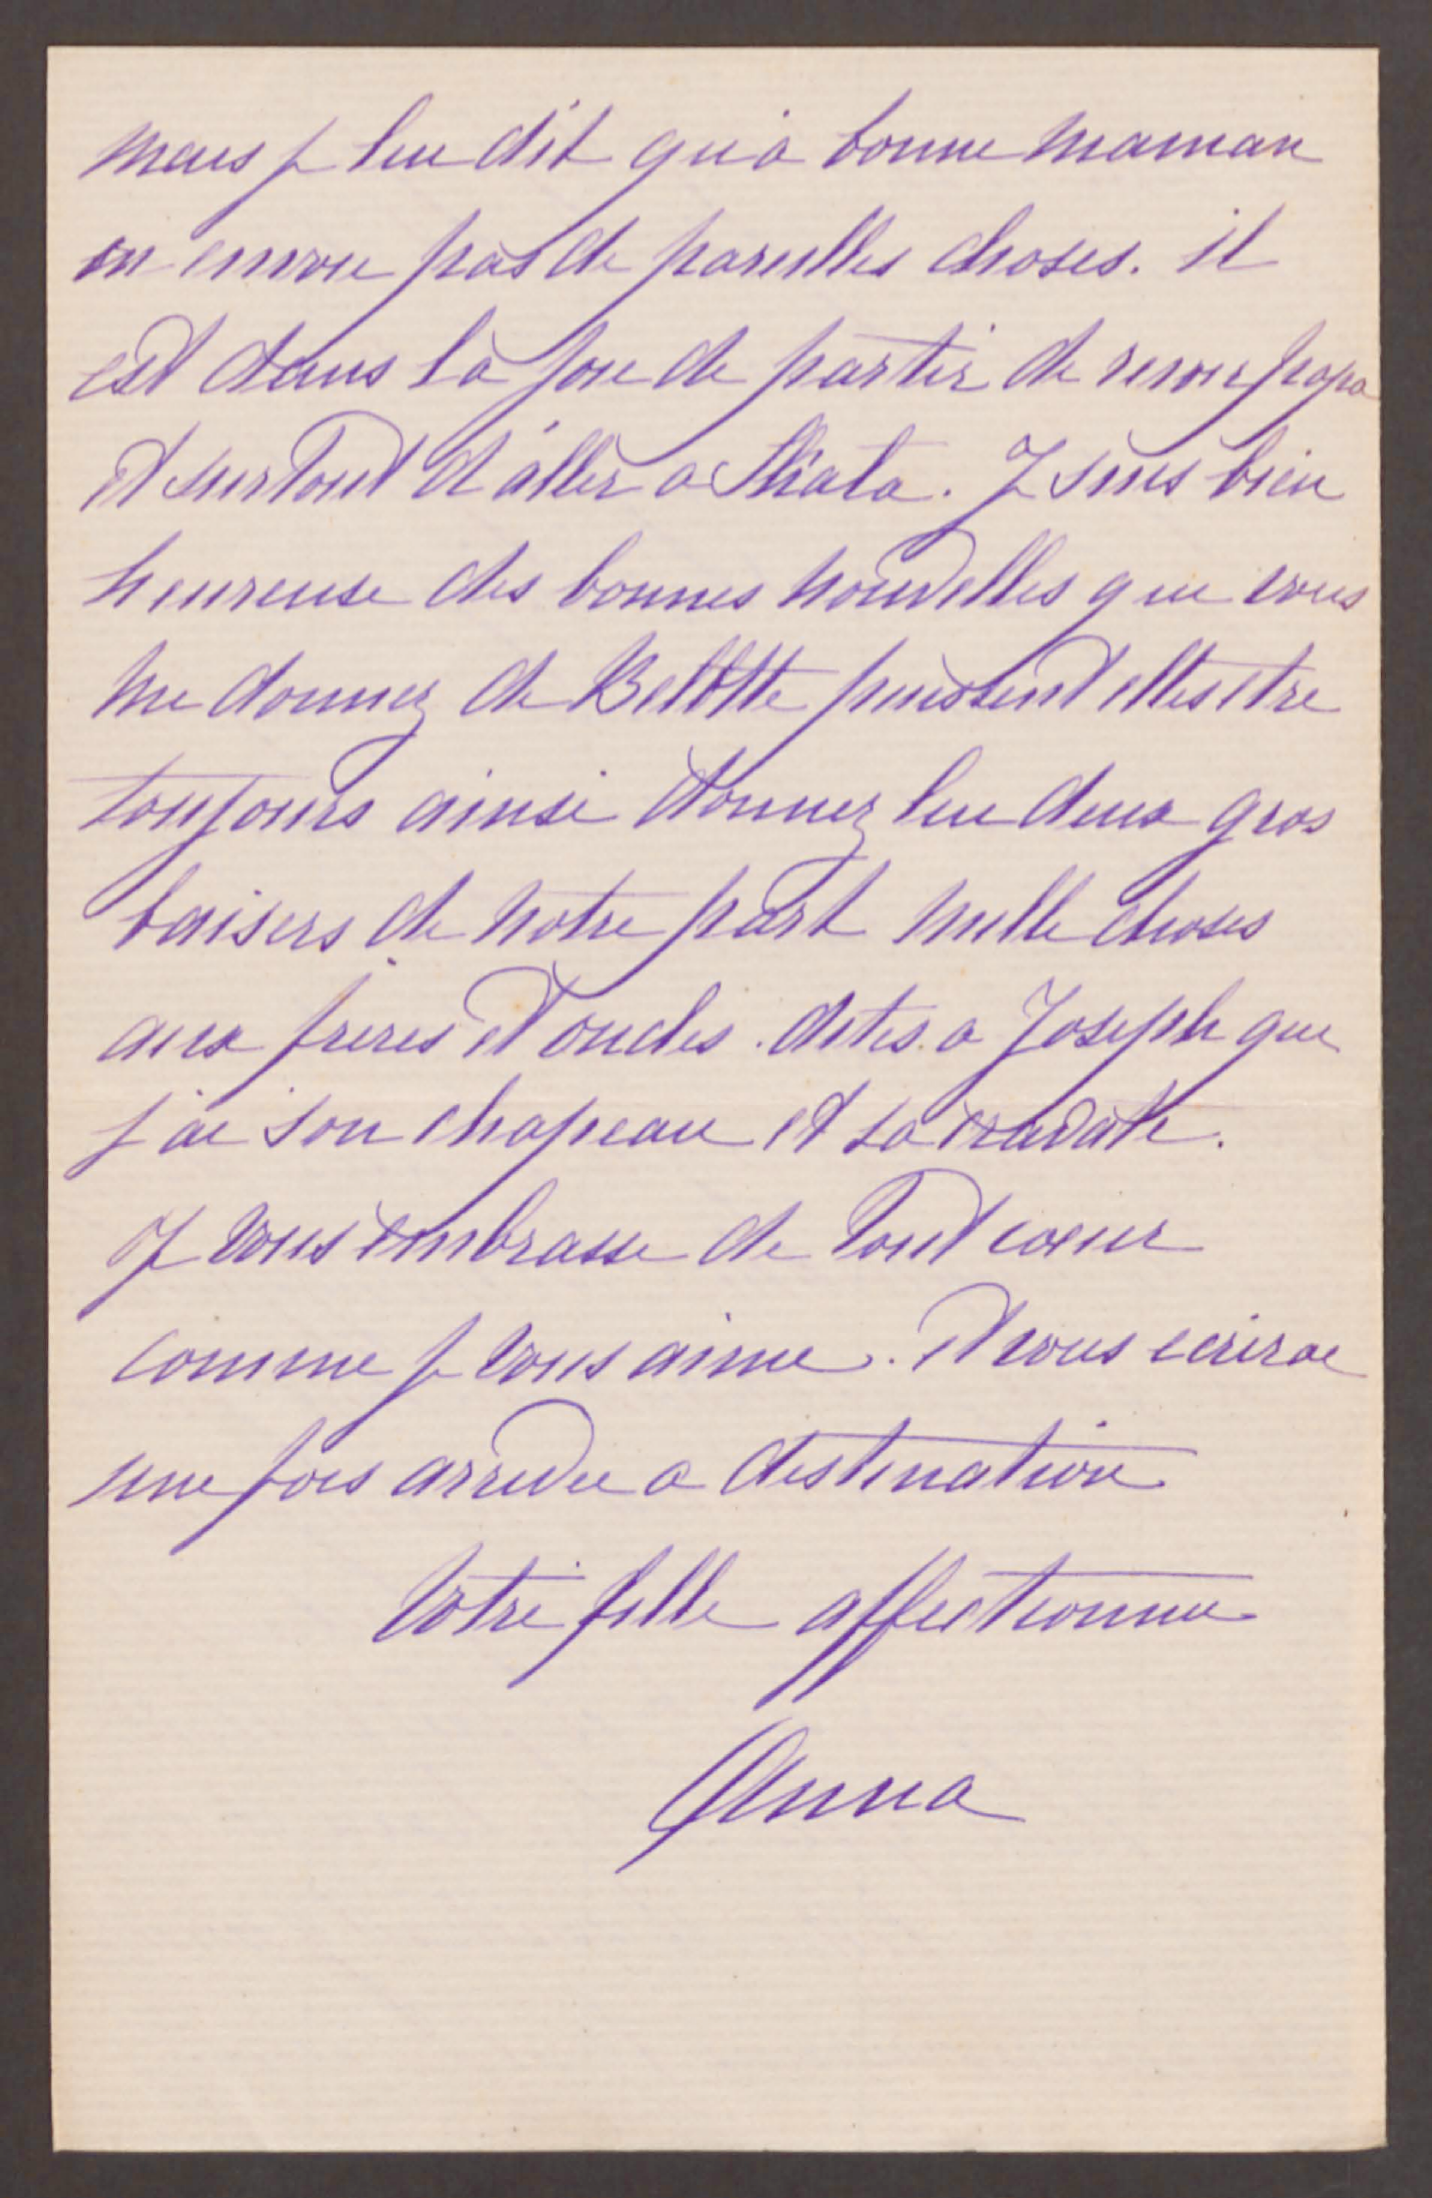 mais je lui dit qu'a bonne maman
on envoie pas de pareilles choses. il
est dans la joie de partir de revoir papa
et surtout d'aller a Thala. Je suis bien
heureuse des bonnes nouvelles que vous
me donnez de Bellotte puissent elles etre
toujours ainsi donnez lui deux gros
baisers de notre part mille choses
aux freres et oncles. dites a Joseph que
j'ai son chapeau et sa cravate.
Je vous embrasse de tout coeur
comme je vous aime. et vous ecrirai
une fois arrivée a destination
Votre fille affectionnée
Anna